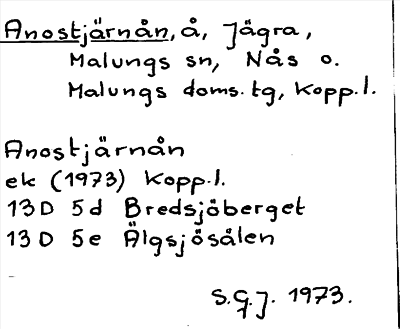 Anostjärnån, å, Jägra,
Malungs sn, Nås o.
Malungs doms.tg, Kopp.l.
Anostjärnån
ek (1973) Kopp.l.
13D 5d Bredsjöberget
13D 5e Älgsjösålen
S.G.J. 1973.